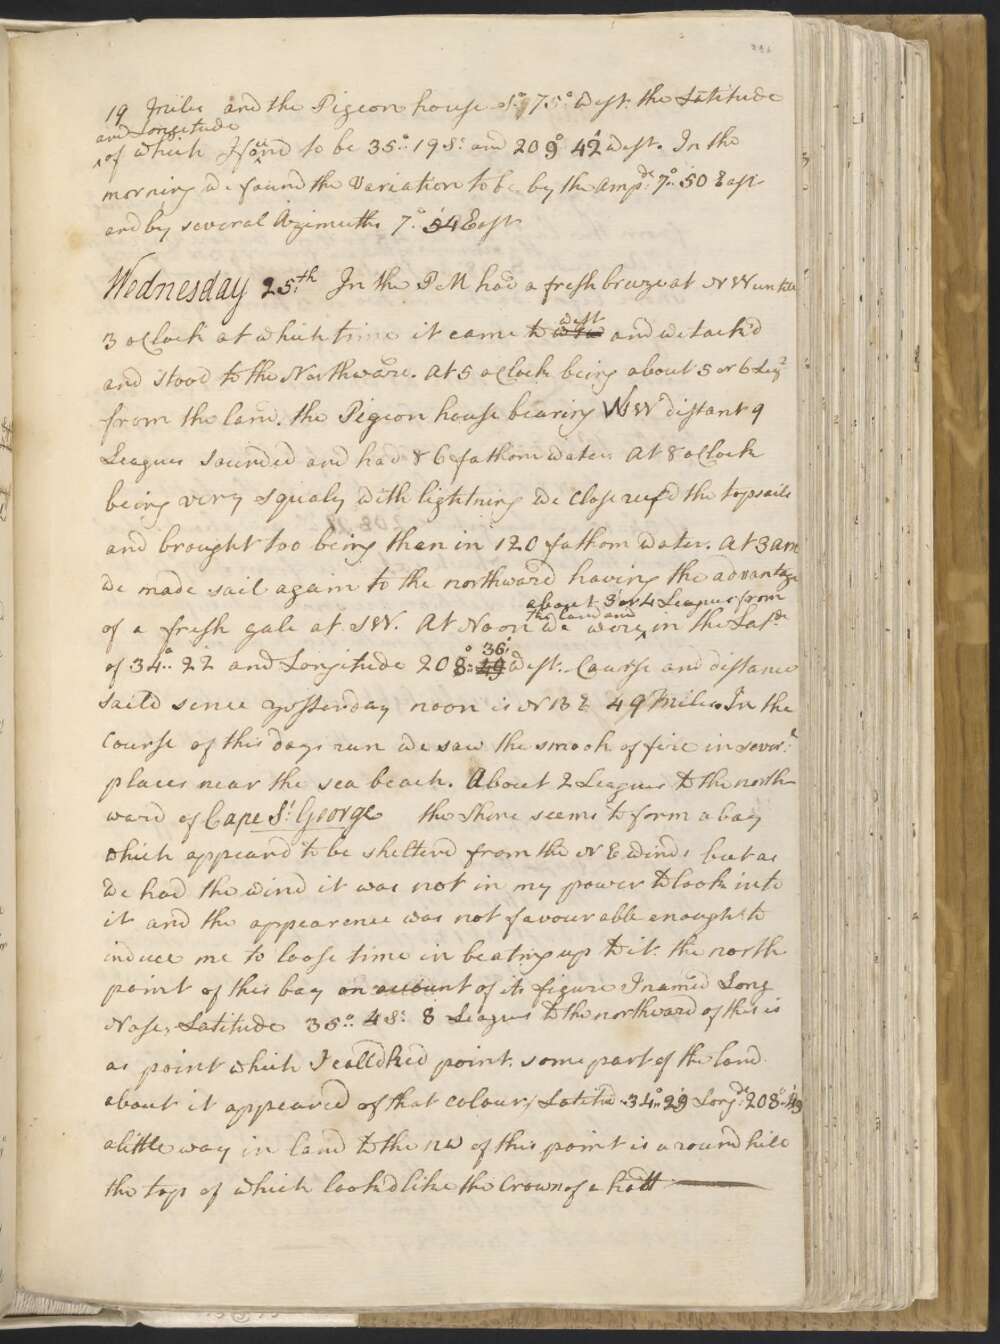 19 Miles and the Pigeon house So. 75° West. the Latitude
and Longitude
of which I found to be 35°.. 19 S: and 209° 42' West. In the
morning we found the Variation to be by the ampde 7°.. 50 East
and by several Azimuths 7°. 54 East
Wednesday 25th In the PM had a fresh breeze at NW untill
west
3 oClock at which time it came to and we tack'd
and stood to the Northward. At 5 oClock being about 5 or 6 Legs
from the land. the Pigeon house bearing WSW distant 9
Leagues sounded and had 86 fathom water. At 8 oClock
being very squaly with lightning we close reef'd the topsails
and brought too being then in 120 fathom water. At 3 am
we made sail again to the northward having the advantage
about 3 or 4 Leagues from
the land and
of a fresh gale at SW. At Noon we were in the Latde
36'
of 34°.. 22 and Longitude 208°.. 49 West. Course and distance
saild since yesterday noon is NBE 49 Miles. In the
course of this days run we saw the smook of fire in several
places near the sea beach. About 2 Leagues to the north-
ward of Cape St George the Shore seems to form a bay
which appear'd to be shelterd from the NE winds but as
we had the wind it was not in my power to look into
it and the appearence was not favourable enough to
induce me to loose time in beating up to it. the north
point of this bay on account of its figure I named Long
Nose, Latitude 35°.. 4 S: 8 Leagues to the northward of this is
as point which I call'd Red point. some part of the land
about it appeared of that colour, Latitd 34°.. 29 Longde 208°.. 49
a little way in land to the NW of this point is a round hill
the top of which look'd like the Crown of a hatt